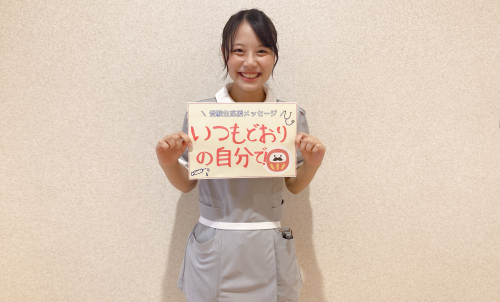 \ 受験生応援メッセージ /
いつもどおり
の自分で